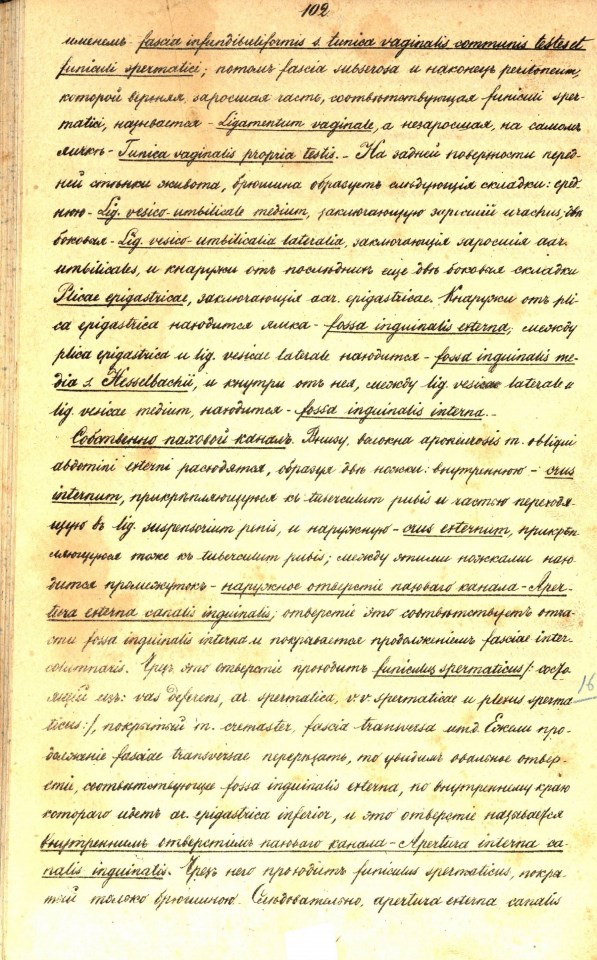 102
именемъ fascia infundibuliformis s. tunica vaginalis communis testes et
funiculi spermatici; потомъ fascia subserosa и наконецъ peritoneum,
которой верхняя заросшая часть, соотвѣтствующая funiculi sper-
matici, называется - Ligamentum vaginale, а незаросшая, на самомъ
яичкѣ - Tunica vaginalis propria testis. - На задней поверхности перед-
ней стѣнки живота, брюшина образуетъ слѣдующія складки: сред-
нюю - Lig. vesico-umbilicale medium, заключающую заросшій urachus, двѣ
боковыя - Lig. vesico-umbilicalia lateralia, заключающія заросшія aar.
umbilicales, и кнаружи отъ послѣднихъ еще двѣ боковыя складки
Plicae epigastricae, заключающія aar. epigastricae. Кнаружи отъ pli-
ca epigastrica находится ямка - fossa inguinalis externa; между
plica epigastrica и lig. vesicae laterale находится - fossa inguinalis me-
dia s. Hesselbachii, и кнутри отъ нея, между lig. vesicae laterale и
lig. vesicae medium, находится - fossa inguinalis interna. -
Собственно паховой каналъ. Внизу, волокна aponeurosis m. obliqui
abdomini externi расходятся, образуя двѣ ножки: внутреннюю - crus
internum, прикрѣпляющуюся къ tuberculum pubis и частью переходя-
щую въ lig. suspensorium penis, и наружную - crus externum, прикрѣп-
ляющуюся тоже къ tuberculum pubis; между этими ножками нахо-
дится промежутокъ - наружное отверстіе паховаго канала - Aper-
tura externa canalis inguinalis; отверстіе это соотвѣтствуетъ отча-
сти fossa inguinalis interna и покрывается продолженіемъ fasciae inter-
columnaris. Чрезъ это отверстіе проходитъ funiculus spermaticus /: состо-
ящій изъ: vas deferens, ar. spermatica, v.v. spermaticae и plexus sperma-
16
ticus :/, покрытый m. cremaster, fascia transversa итд. Ежели про-
долженіе fasciae transversae перерѣзать, то увидимъ овальное отвер-
стіе, соотвѣтствующее fossa inguinalis externa, по внутреннему краю
котораго идетъ ar. epigastrica inferior, и это отверстіе называется
внутреннимъ отверстіемъ паховаго канала - Apertura interna ca-
nalis inguinalis. Чрезъ него проходитъ funiculus spermaticus, покры-
тый только брюшиною. Слѣдовательно, apertura externa canalis